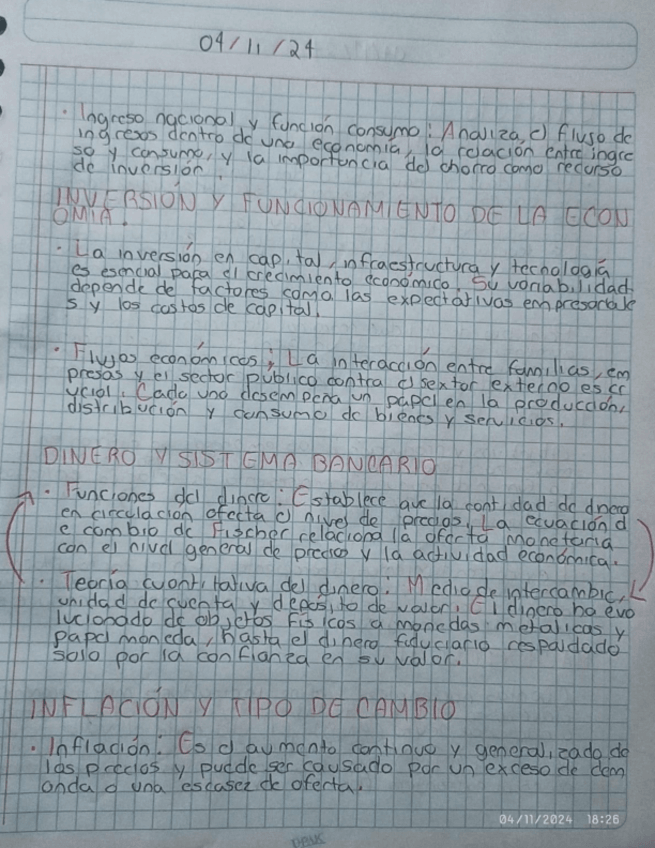 04/11/24
· Ingreso nacional y función consumo: Analiza, el fluso de
ingresos dentro de una economía, la relación entre ingre
so y consumo, y la importancia del chorro como recurso
de inversión.
INVERSIÓN Y FUNCIONAMIENTO DE LA ECON
OMIA.
· La inversión en capital, infraestructura y tecnología
es esencial papa el crecimiento económico. Su variabilidad
depende de factores como las expectativas empresariale
s y los costos de capital.
· Flujos económicos; La interacción entre familias, em
presas y el sector público contra el sextor externo es cr
ucial. Cada uno desempeña un papel en la producción,
distribución y consumo de bienes y servicios.
DINERO Y SISTEMA BANCARIO
· Funciones del dinero: Establece que la cantidad de dnero
en circulación afecta el nivel de precios. La ecuación d
e cambio de Fischer relaciona la oferta monetaria
con el nivel general de precios y la actividad económica.
· Teoría cuantitativa del dinero: Medio de intercambio,
unidad de cuenta y deposito de valor. El dinero ha evo
lucionado de objetos físicos a monedas metálicas y
papel moneda, hasta el dinero fiduciario respaldado
solo por la confianza en su valor.
INFLACIÓN Y TIPO DE CAMBIO
· Inflación: Es el aumento continuo y generalizado de
los precios y puede ser causado por un exceso de dem
anda o una escasez de oferta.
04/11/2024 18:26